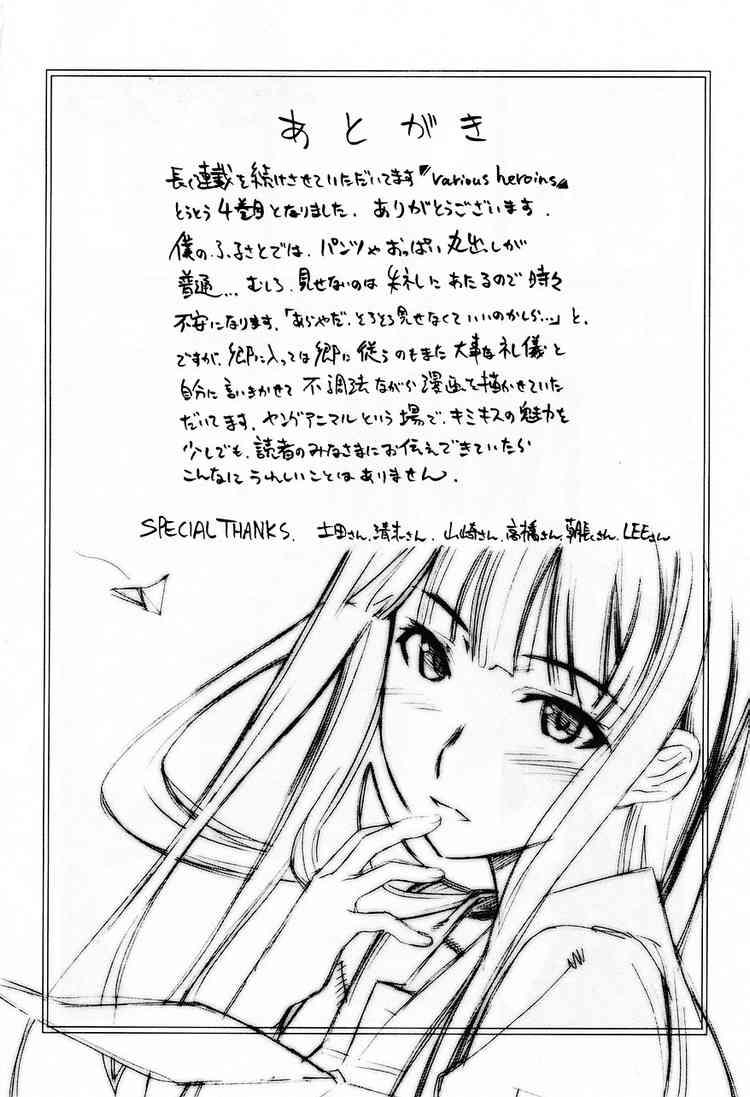 あとがき
長く連載を続けさせていただいてます『various heroins』
とうとう4巻目となりました。ありがとうございます。
僕のふるさとでは、パンツやおっぱい丸出しが
普通…むしろ、見せないのは失礼にあたるので時々
不安になります。「あらやだ、そろそろ見せなくていいのかしら…」と。
ですが、郷に入っては郷に従うのもまた大事な礼儀と
自分に言いきかせて不調法ながら漫画を描かせていた
だいてます。ヤングアニマルという場で、キミキスの魅力を
少しでも、読者のみなさまにお伝えできていたら
こんなにうれしいことはありません。
SPECIAL THANKS. 土田さん、清水さん、山崎さん、高橋さん、朝長くん、LEEさん